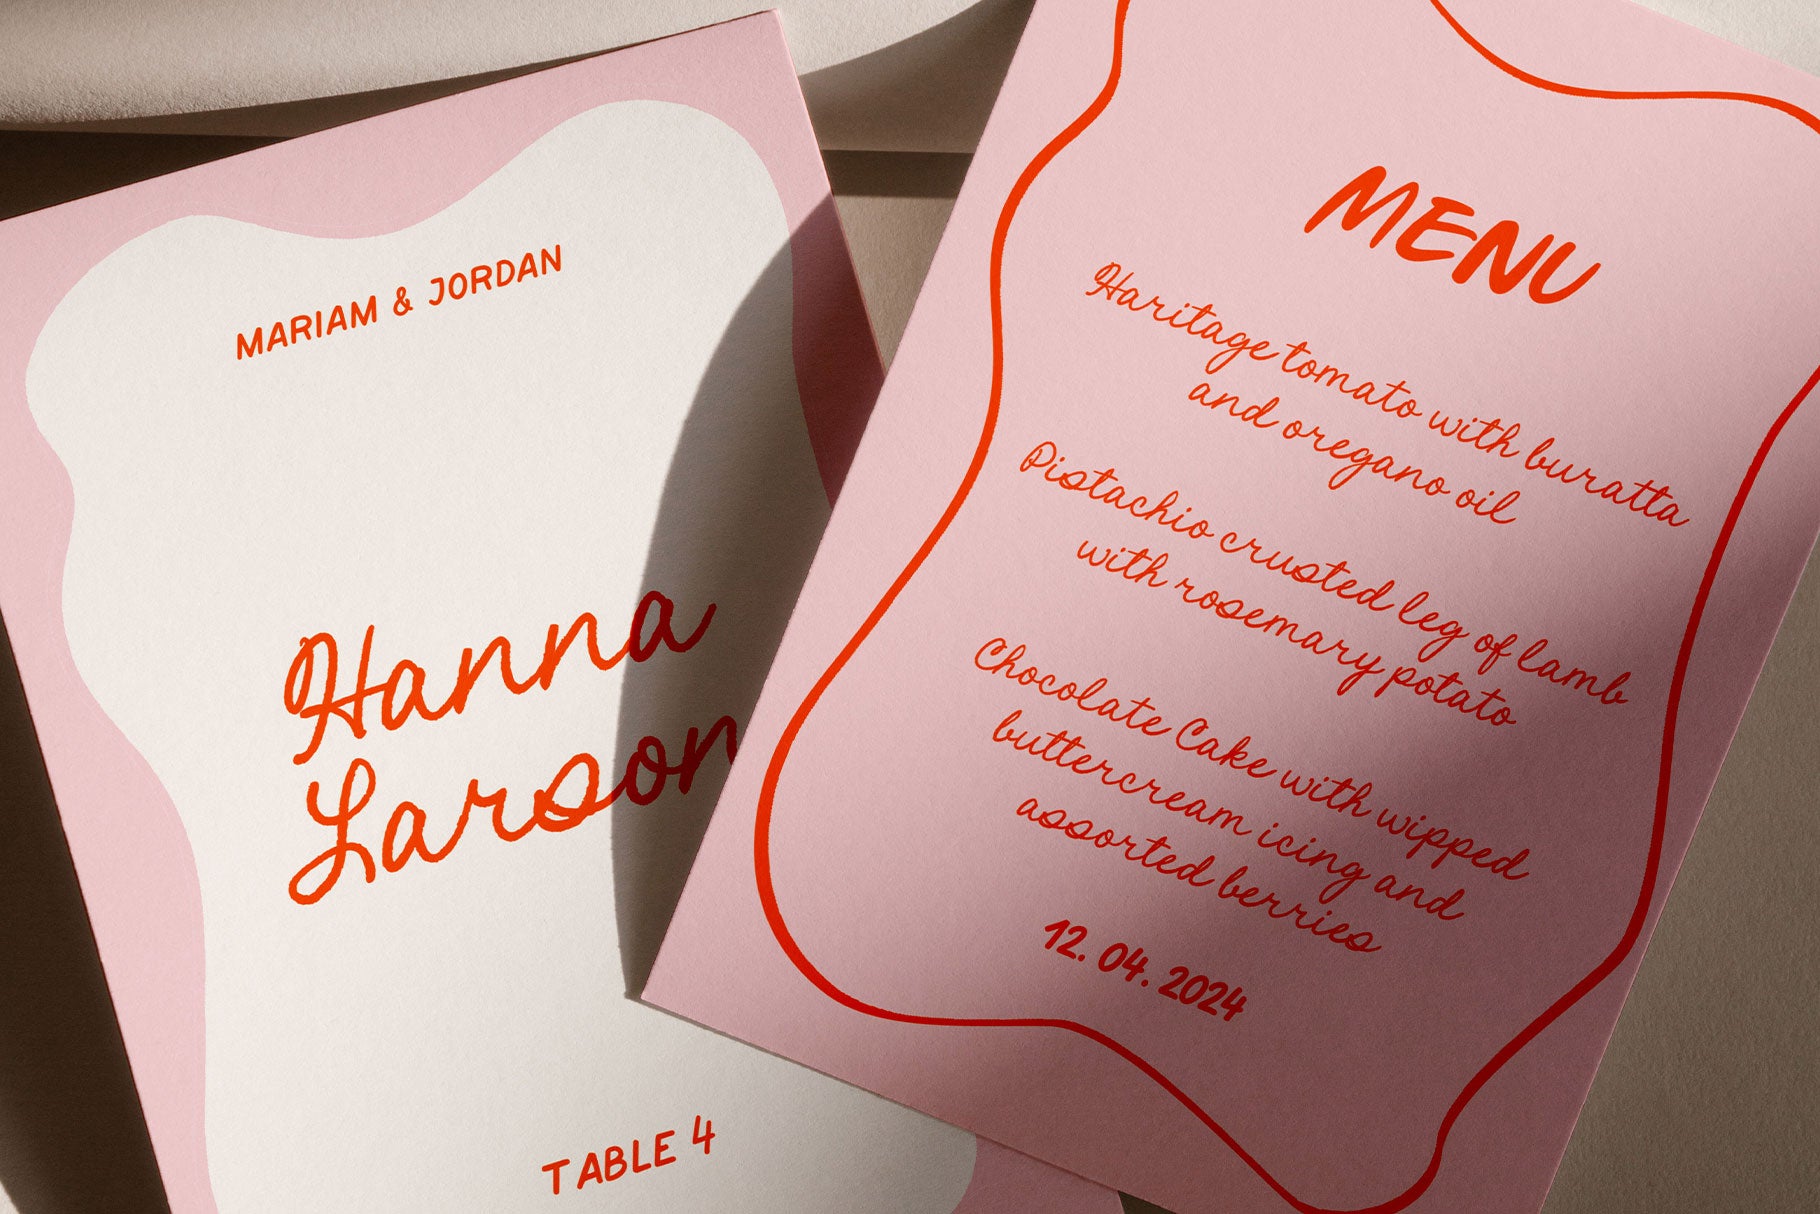 MARIAM & JORDAN
Hanna
Larson
TABLE 4
MENU
Haritage tomato with buratta
and oregano oil
Pistachio crusted leg of lamb
with rosemary potato
Chocolate Cake with wipped
buttercream icing and
assorted berries
12. 04. 2024